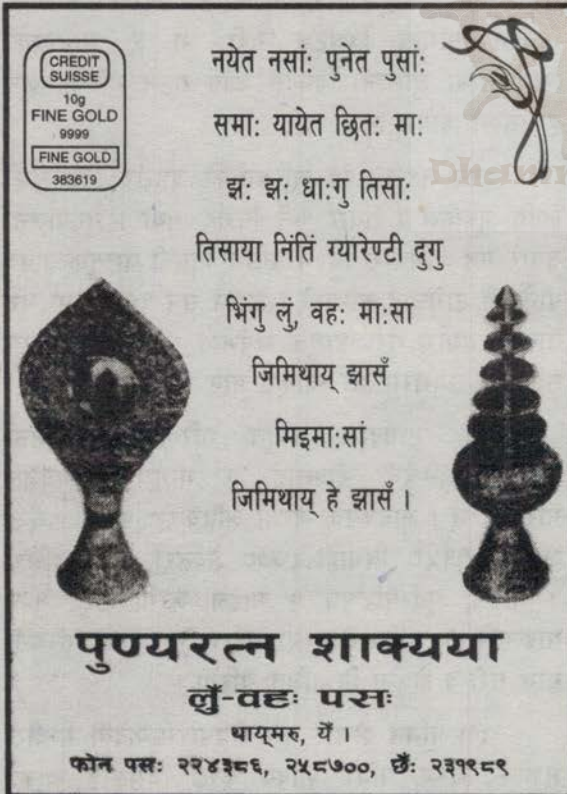 CREDIT
SUISSE
10g
FINE GOLD
9999
FINE GOLD
383619
नयेत नसां: पुनेत पुसां:
समा: यायेत छित: मा:
झ: झ: धा:गु तिसा:
तिसाया निंतिं ग्यारेण्टी दुगु
भिंगु लुं, वह: मा:सा
जिमिथाय् झासँ
मिइमा:सां
जिमिथाय् हे झासँ ।
पुण्यरत्न शाक्यया
लुँ-वहः पसः
थाय्‌मरु, येँ ।
फोन पसः २२४३८६, २५८७००, छेँः २३१९८९